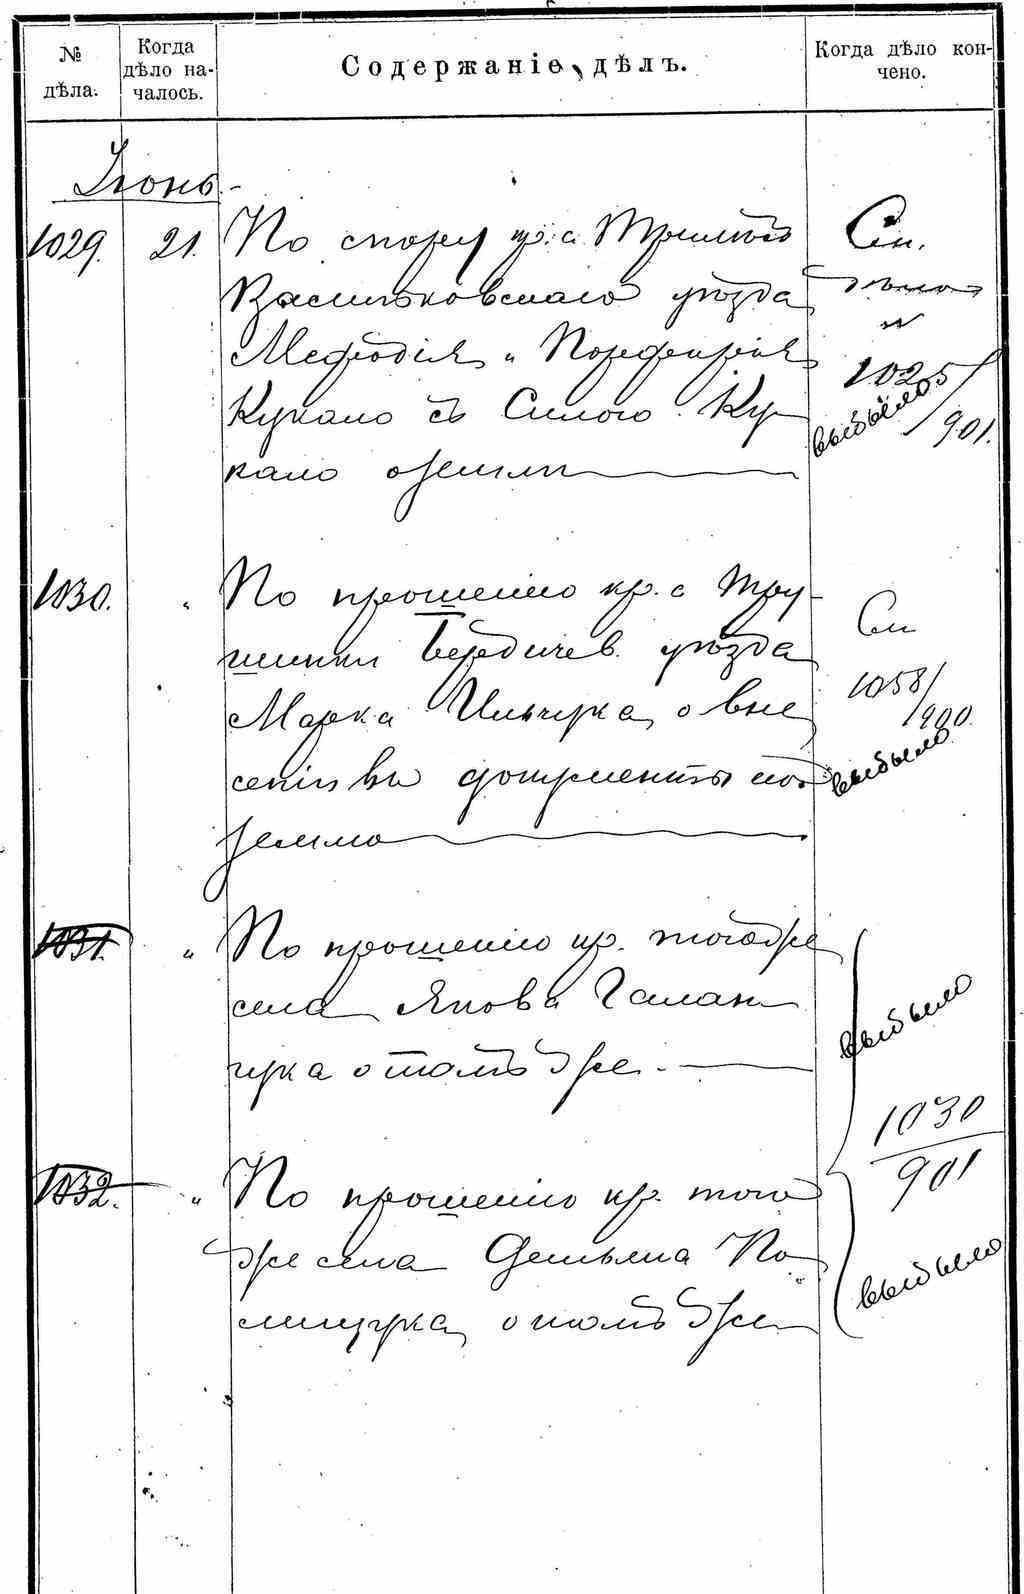 № дѣла.
Когда дѣло на-
чалось.
Содержаніе дѣлъ.
Когда дѣло кон-
чено.
Іюнь
1029. 21. По спору кр. с.
Васильковскаго уѣзда
Мефодія и Порфирія
Кукало съ Силою Ку-
кало о земли
См.
дѣло
№
1025/901.
выбыло
1030. " По прошенію кр. с. Тру-
шинки Бердичев. уѣзда
Марка Ильчука, о вне
сеніи въ документы на
землю
См
1058/900.
выбыло
1031. " По прошенію кр. тогоже
села Якова Галан
чука о томъ же.
выбыло
1030
901
1032. " По прошенію кр. того
же села Демьяна По
лищука, о томъ же
выбыло